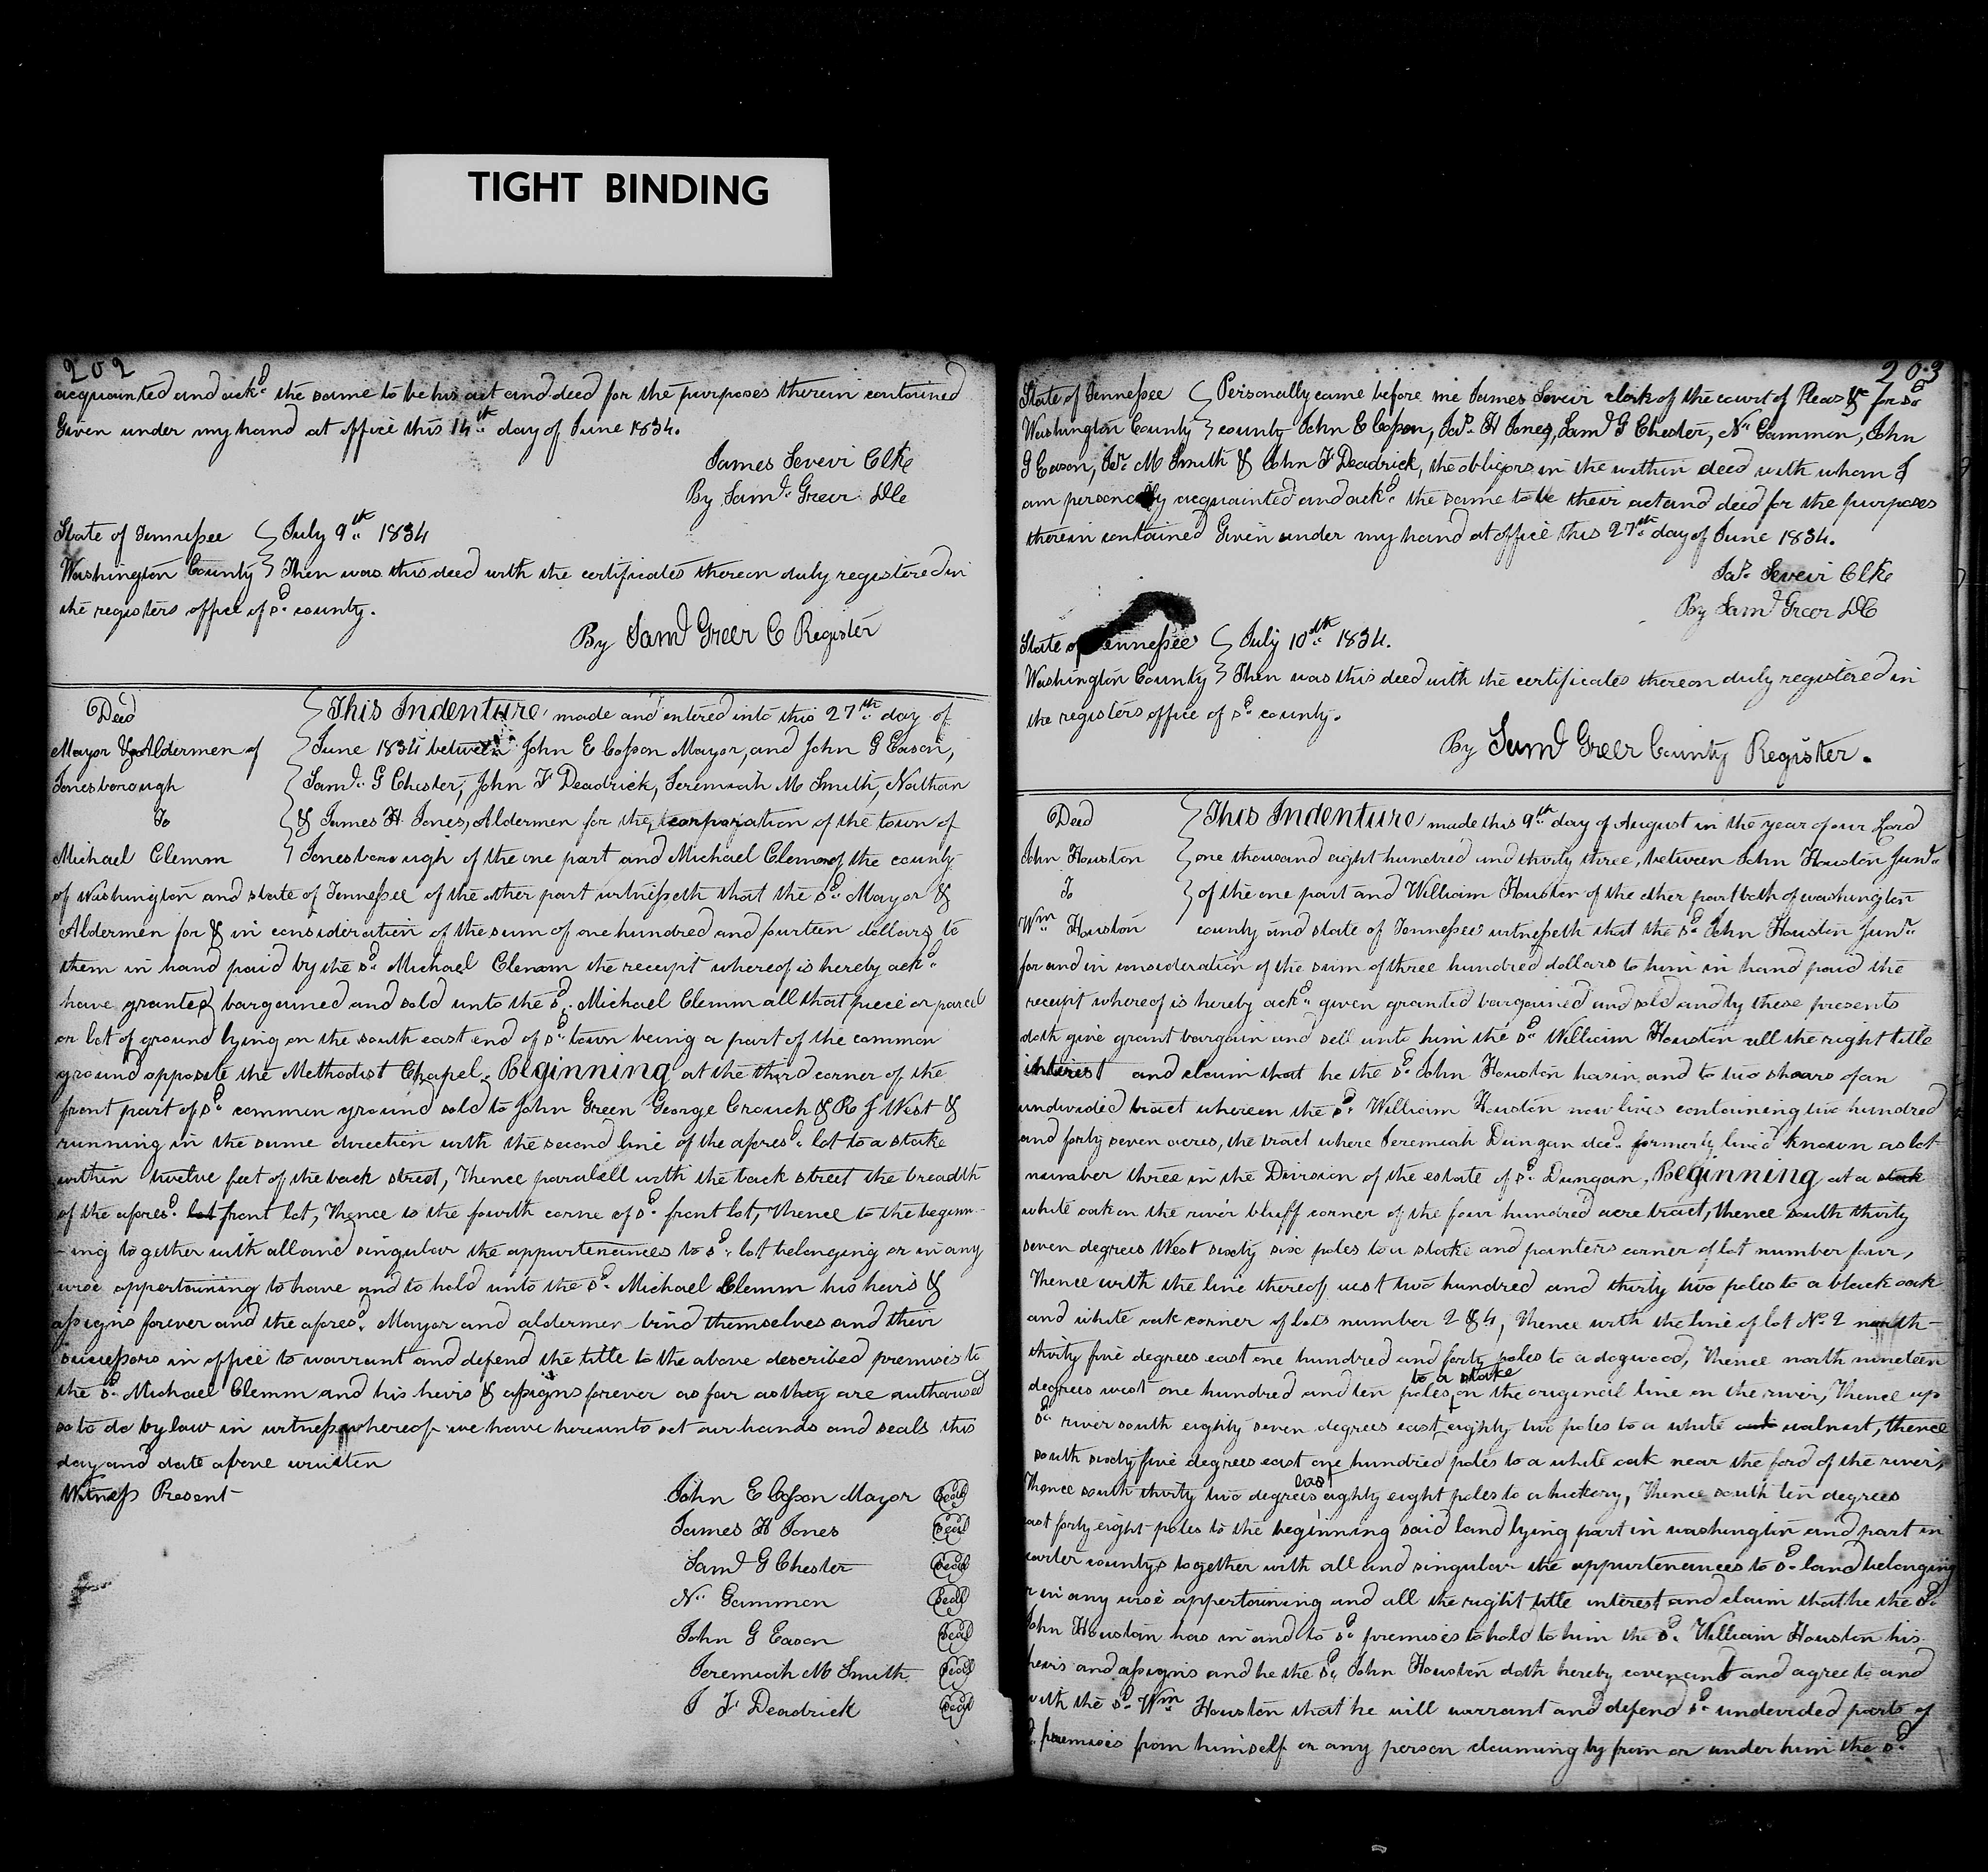 TIGHT BINDING
202
acquainted and ackd. the same to be his act and deed for the purposes therein contained
Given under my hand at office this 14th day of June 1834.
James Sevier Clke
By Saml. Greer DC
State of Tennessee } July 9th 1834
Washington County } Then was this deed with the certificates thereon duly registered in
the registers office of sd. county.
By Saml Greer C Register
Deed } This Indenture made and entered into this 27th day of
Mayor & Aldermen of } June 1834 between John E Cosson Mayor, and John G Eason,
Jonesborough } Saml. G Chester, John F Deadrick, Jeremiah M Smith, Nathan
To } & James H Jones, Aldermen for the corporation of the town of
Michael Clemm } Jonesborough of the one part and Michael Clemm of the county
of Washington and state of Tennessee of the other part witnesseth that the sd. Mayor &
Aldermen for & in consideration of the sum of one hundred and fourteen dollars to
them in hand paid by the sd. Michael Clemm the receipt whereof is hereby ackd.
have granted bargained and sold unto the sd. Michael Clemm all that piece or parcel
or lot of ground lying on the south east end of sd. town being a part of the common
ground opposite the Methodist Chapel. Beginning at the third corner of the
front part of sd. common ground sold to John Green George Crouch & R J West &
running in the same direction with the second line of the aforesd. lot to a stake
within twelve feet of the back street, Thence paralell with the back street the breadth
of the aforesd. lot front lot, Thence to the fourth corne of sd. front lot, Thence to the beginn-
-ing together with all and singular the appurtenances to sd. lot belonging or in any
wise appertaining to have and to hold unto the sd. Michael Clemm his heirs &
assigns forever and the aforesd. Mayor and aldermen bind themselves and their
successors in office to warrant and defend the title to the above described premises to
the sd. Michael Clemm and his heirs & assigns forever as far as they are authorised
so to do by law in witness whereof we have hereunto set our hands and seals this
day and date above written
Witness Present John E Cosson Mayor Seal
James H Jones Seal
Saml G Chester Seal
N. Gammon Seal
John G Eason Seal
Jeremiah M Smith Seal
J F Deadrick Seal
203
State of Tennessee } Personally came before me James Sevier clerk of the court of Pleas &c for sd
Washington County } county John E Cosson, Jas. H Jones, Saml G Chester, N. Gammon, John
G Eason, Jer. M Smith & John F Deadrick, the obligors in the within deed with whom I
am personally acquainted and ackd. the same to be their act and deed for the purposes
therein contained Given under my hand at office this 27th day of June 1834.
Jas. Sevier Clke
By Saml Greer DC
State of Tennessee } July 10th 1834.
Washington County } Then was this deed with the certificates thereon duly registered in
the registers office of sd. county.
By Saml Greer County Register.
Deed } This Indenture made this 9th day of August in the year of our Lord
John Houston } one thousand eight hundred and thirty three, between John Houston Junr.
To } of the one part and William Houston of the other part both of washington
Wm Houston county and state of Tennessee witnesseth that the sd. John Houston Junr.
for and in consideration of the sum of three hundred dollars to him in hand paid the
receipt whereof is hereby ackd. given granted bargained and sold and by these presents
doth give grant bargain and sell unto him the sd. William Houston all the right title
interest and claim that he the sd. John Houston has in and to two shears of an
undivided tract wherein the sd. William Houston now lives containing two hundred
and forty seven acres, the tract where Jeremiah Dungan decd. formerly lived known as lot
number three in the Division of the estate of sd. Dungan, Beginning at a stake
white oak on the river bluff corner of the four hundred acre tract, thence south thirty
seven degrees West sixty six poles to a stake and pointers corner of lot number four,
Thence with the line thereof west two hundred and thirty two poles to a black oak
and white oak corner of lots number 2 & 4, Thence with the line of lot No. 2 north
thirty five degrees east one hundred and forty poles to a dogwood, Thence north nineteen
degrees west one hundred and ten poles to a stake on the original line on the river, Thence up
sd. river south eighty seven degrees east eighty two poles to a white oak walnut, thence
south sixty five degrees east one hundred poles to a white oak near the ford of the river,
Thence south thirty two degrees east eighty eight poles to a hickory, Thence south ten degrees
east forty eight poles to the beginning said land lying part in washington and part in
carter countys together with all and singular the appurtenances to sd. land belonging
or in any wise appertaining and all the right title interest and claim that he the sd.
John Houston has in and to sd. premises to hold to him the sd. William Houston his
heirs and assigns and he the sd. John Houston doth hereby covenant and agree to and
with the sd. Wm Houston that he will warrant and defend sd. undevided parts of
sd. premises from himself or any person claiming by from or under him the sd.